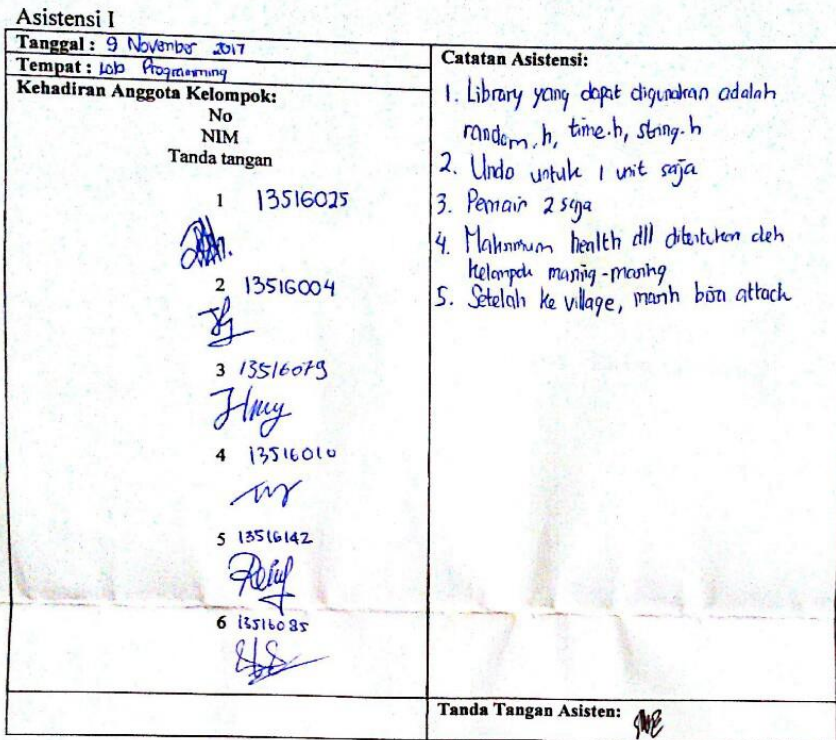 Asistensi I
Tanggal : 9 November 2017
Tempat : Lab Programming
Kehadiran Anggota Kelompok:
No
NIM
Tanda tangan
1 13516025
2 13516004
3 13516079
4 13516010
5 13516142
6 13516085
Catatan Asistensi:
1. Library yang dapat digunakan adalah
random.h, time.h, string.h
2. Undo untuk 1 unit saja
3. Pemain 2 saja
4. Maksimum health dll ditentukan oleh
kelompok masing-masing
5. Setelah ke village, masih bisa attack
Tanda Tangan Asisten: